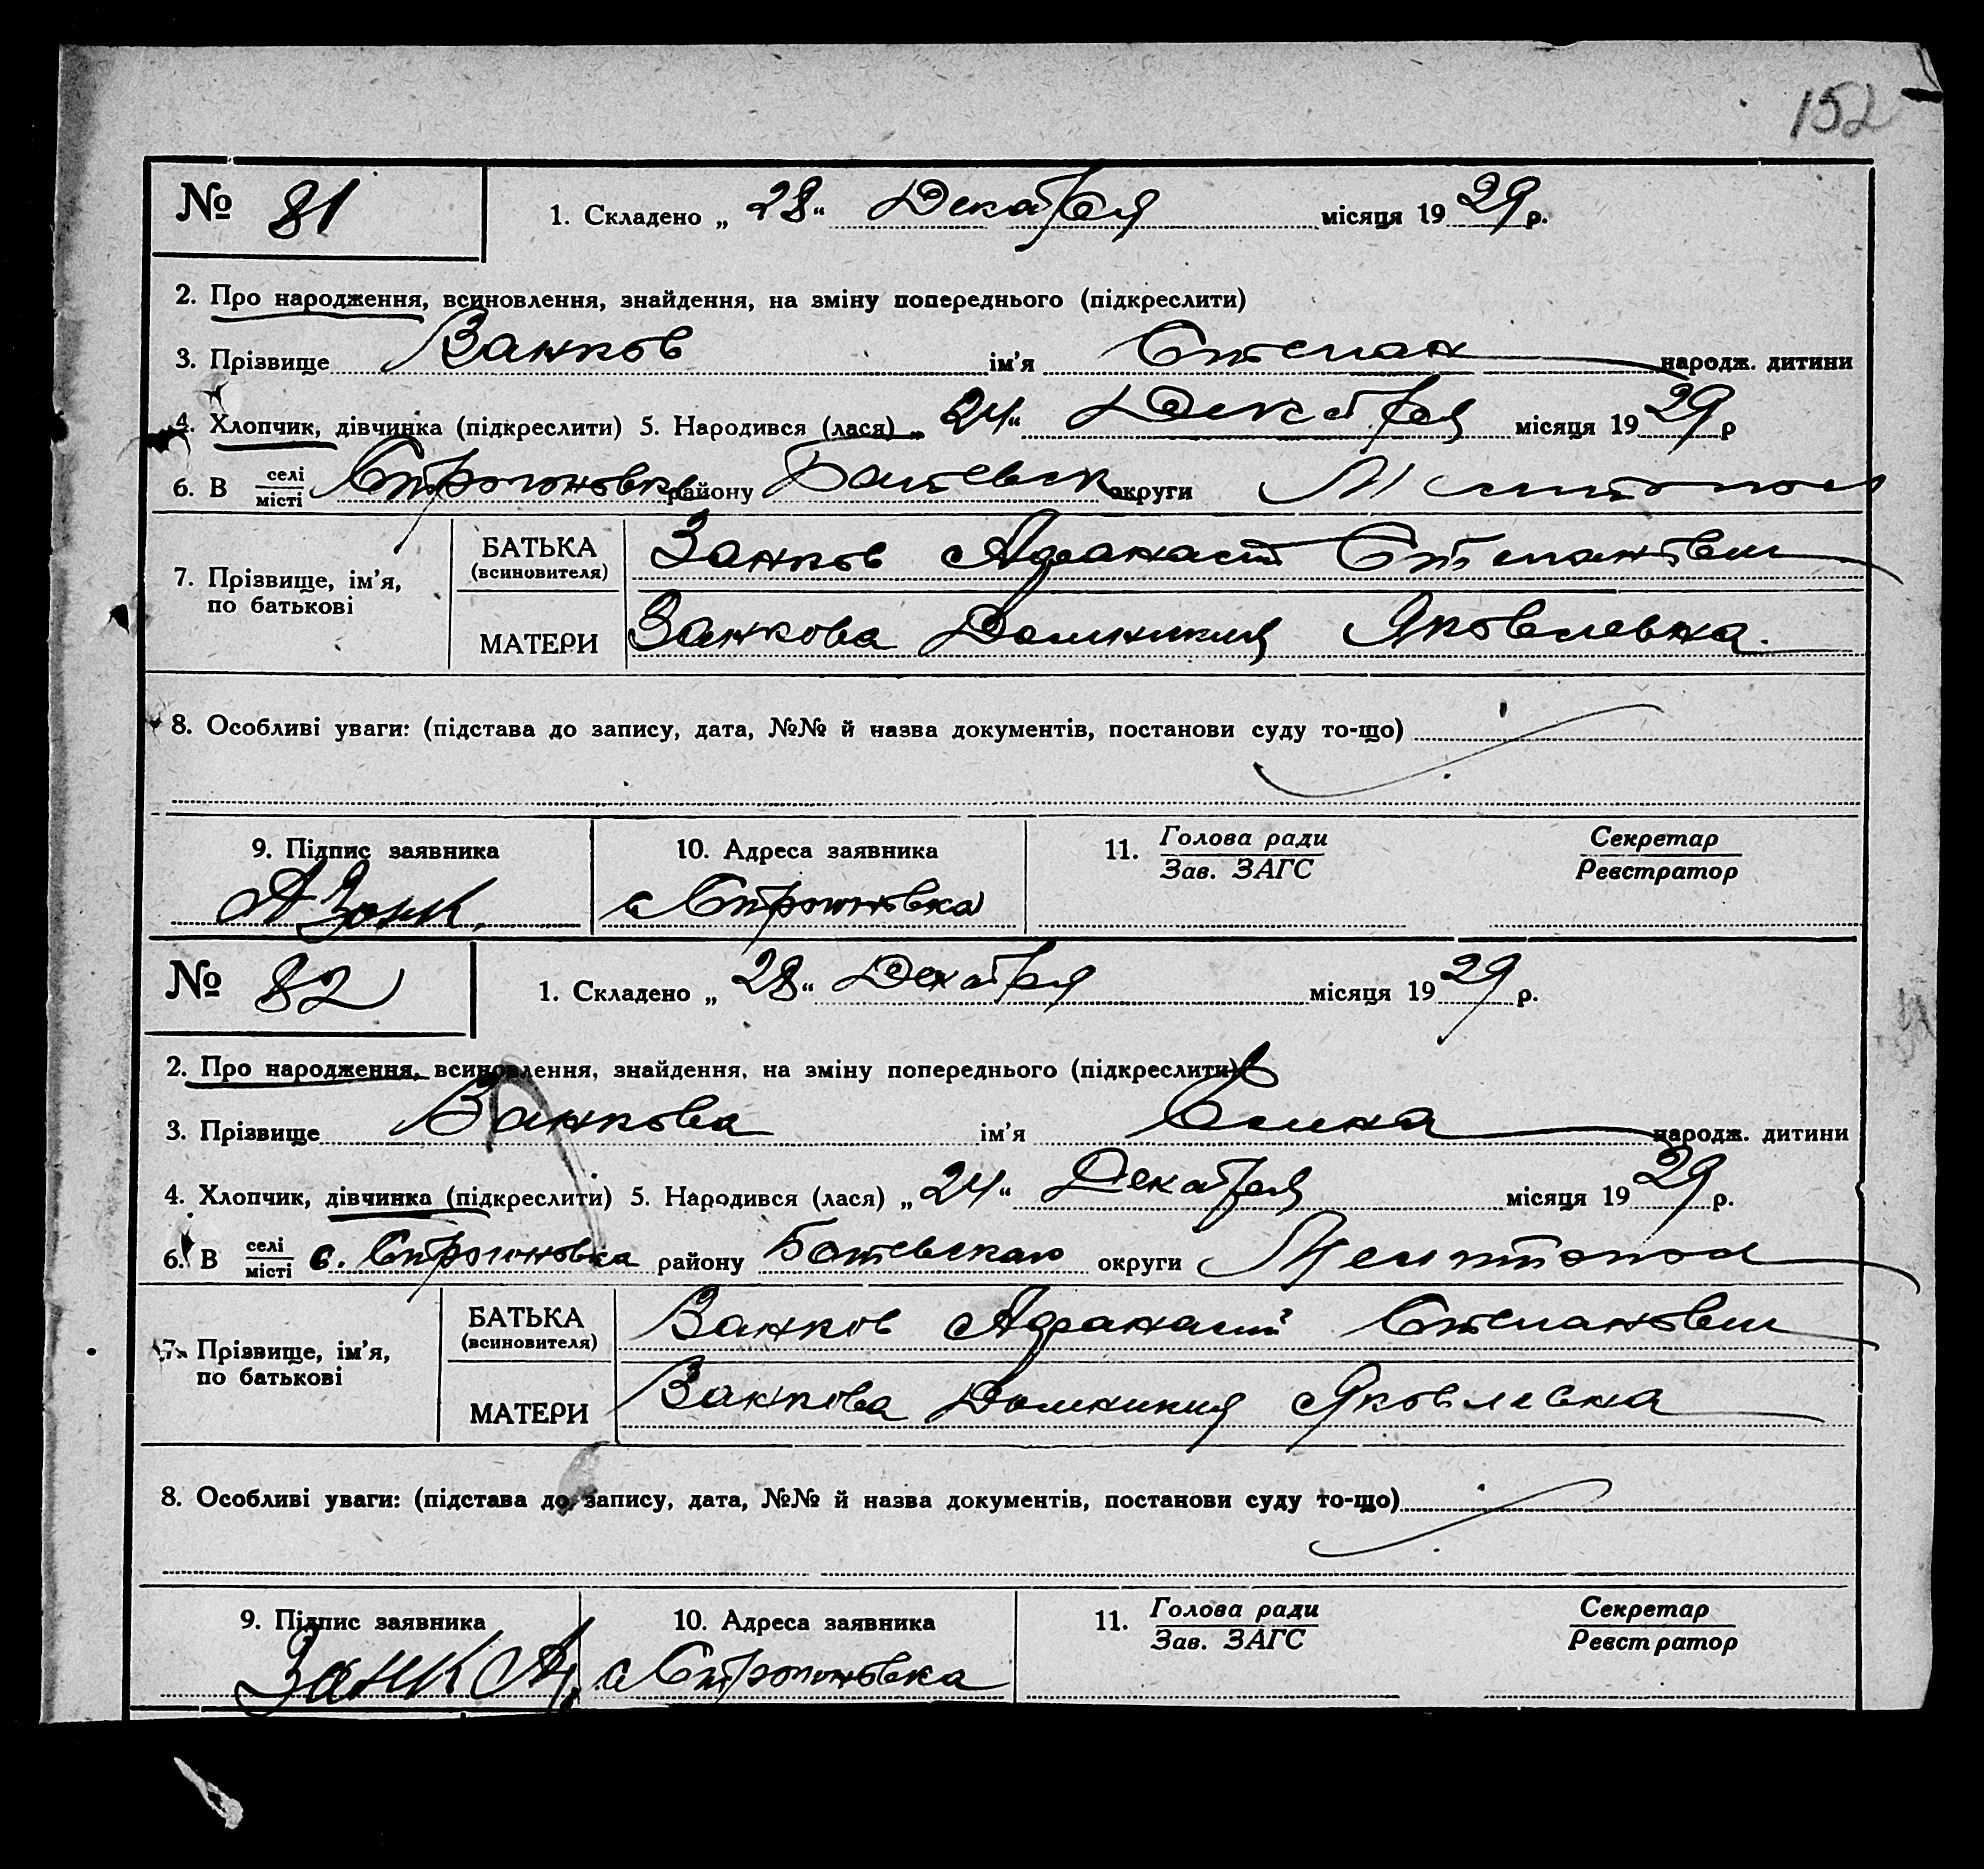 152
№ 81 1. Складено „ 28 " Декабря місяця 19 29 р.
2. Про народження, всиновлення, знайдення, на зміну попереднього (підкреслити)
3. Прізвище Занков ім'я Степан народж. дитини
4. Хлопчик, дівчинка (підкреслити) 5. Народився (лася) „ 24 " Декабря місяця 19 29 р
6. В селі/місті Строгоновке району Ботевск округи Мелитопол
7. Прізвище, ім'я, по батькові
БАТЬКА (всиновителя) Занков Афанасий Степанович
МАТЕРИ Занкова Домникия Яковлевна.
8. Особливі уваги: (підстава до запису, дата, №№ й назва документів, постанови суду то-що)
9. Підпис заявника 10. Адреса заявника 11. Голова ради/Зав. ЗАГС Секретар/Реєстратор
А Занк. с Строгоновка
№ 82 1. Складено „ 28 " Декабря місяця 19 29 р.
2. Про народження, всиновлення, знайдення, на зміну попереднього (підкреслити)
3. Прізвище Занкова ім'я народж. дитини
4. Хлопчик, дівчинка (підкреслити) 5. Народився (лася) „ 24 " Декабря місяця 19 29 р.
6. В селі/місті с. Строгоновка району Ботевскаю округи Мелитопол
7. Прізвище, ім'я, по батькові
БАТЬКА (всиновителя) Занков Афанасий Степанович
МАТЕРИ Занкова Домникия Яковлевна
8. Особливі уваги: (підстава до запису, дата, №№ й назва документів, постанови суду то-що)
9. Підпис заявника 10. Адреса заявника 11. Голова ради/Зав. ЗАГС Секретар/Реєстратор
Занк А. с Строгоновка